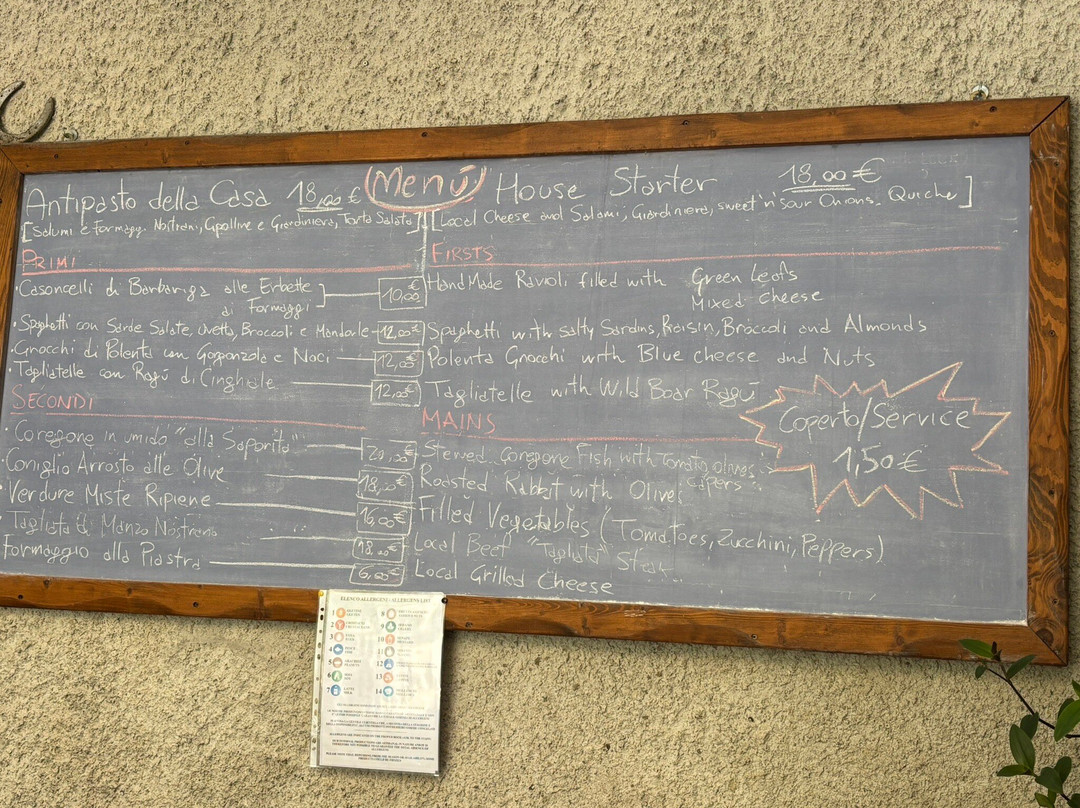 Antipasto della Casa 18,00 € Menù House Starter 18,00 €
[Salumi e formagg. Nostrani, Cipolline e Giardiniera, Torta Salata] [Local Cheese and Salami, Giardiniera, sweet'n'sour Onions. Quiche]
PRIMI
FIRSTS
• Casoncelli di Barbariga alle Erbette
di Formaggi
10,00 €
Hand Made Ravioli filled with Green Leafs
Mixed cheese
• Spaghetti con Sarde Salate, Uvetta, Broccoli e Mandorle 12,00 € Spaghetti with salty Sardins, Raisin, Broccoli and Almonds
• Gnocchi di Polenta con Gorgonzola e Noci 12,00 € Polenta Gnocchi with Blue cheese and Nuts
• Tagliatelle con Ragù di Cinghiale 12,00 € Tagliatelle with Wild Boar Ragù
Coperto/Service
1,50 €
SECONDI
MAINS
• Coregone in umido "alla Saporita" Stewed coregone Fish with Tomato, olives,
capers
• Coniglio Arrosto alle Olive 18,00 € Roasted Rabbit with Olives
• Verdure Miste Ripiene 16,00 € Filled Vegetables (Tomatoes, Zucchini, Peppers)
• Tagliata di Manzo Nostrano 18,00 € Local Beef "Tagliata" Steak
Formaggio alla Piastra 6,00 € Local Grilled Cheese
ELENCO ALLERGENI / ALLERGENS LIST
1
2
3
4
5
6
7
8
9
10
11
12
13
14